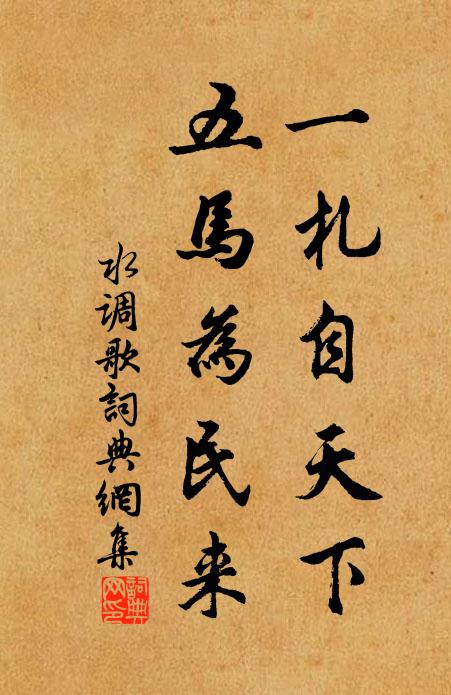 一札自天下
五馬為民来
水调歌詞典網集
詞典网印